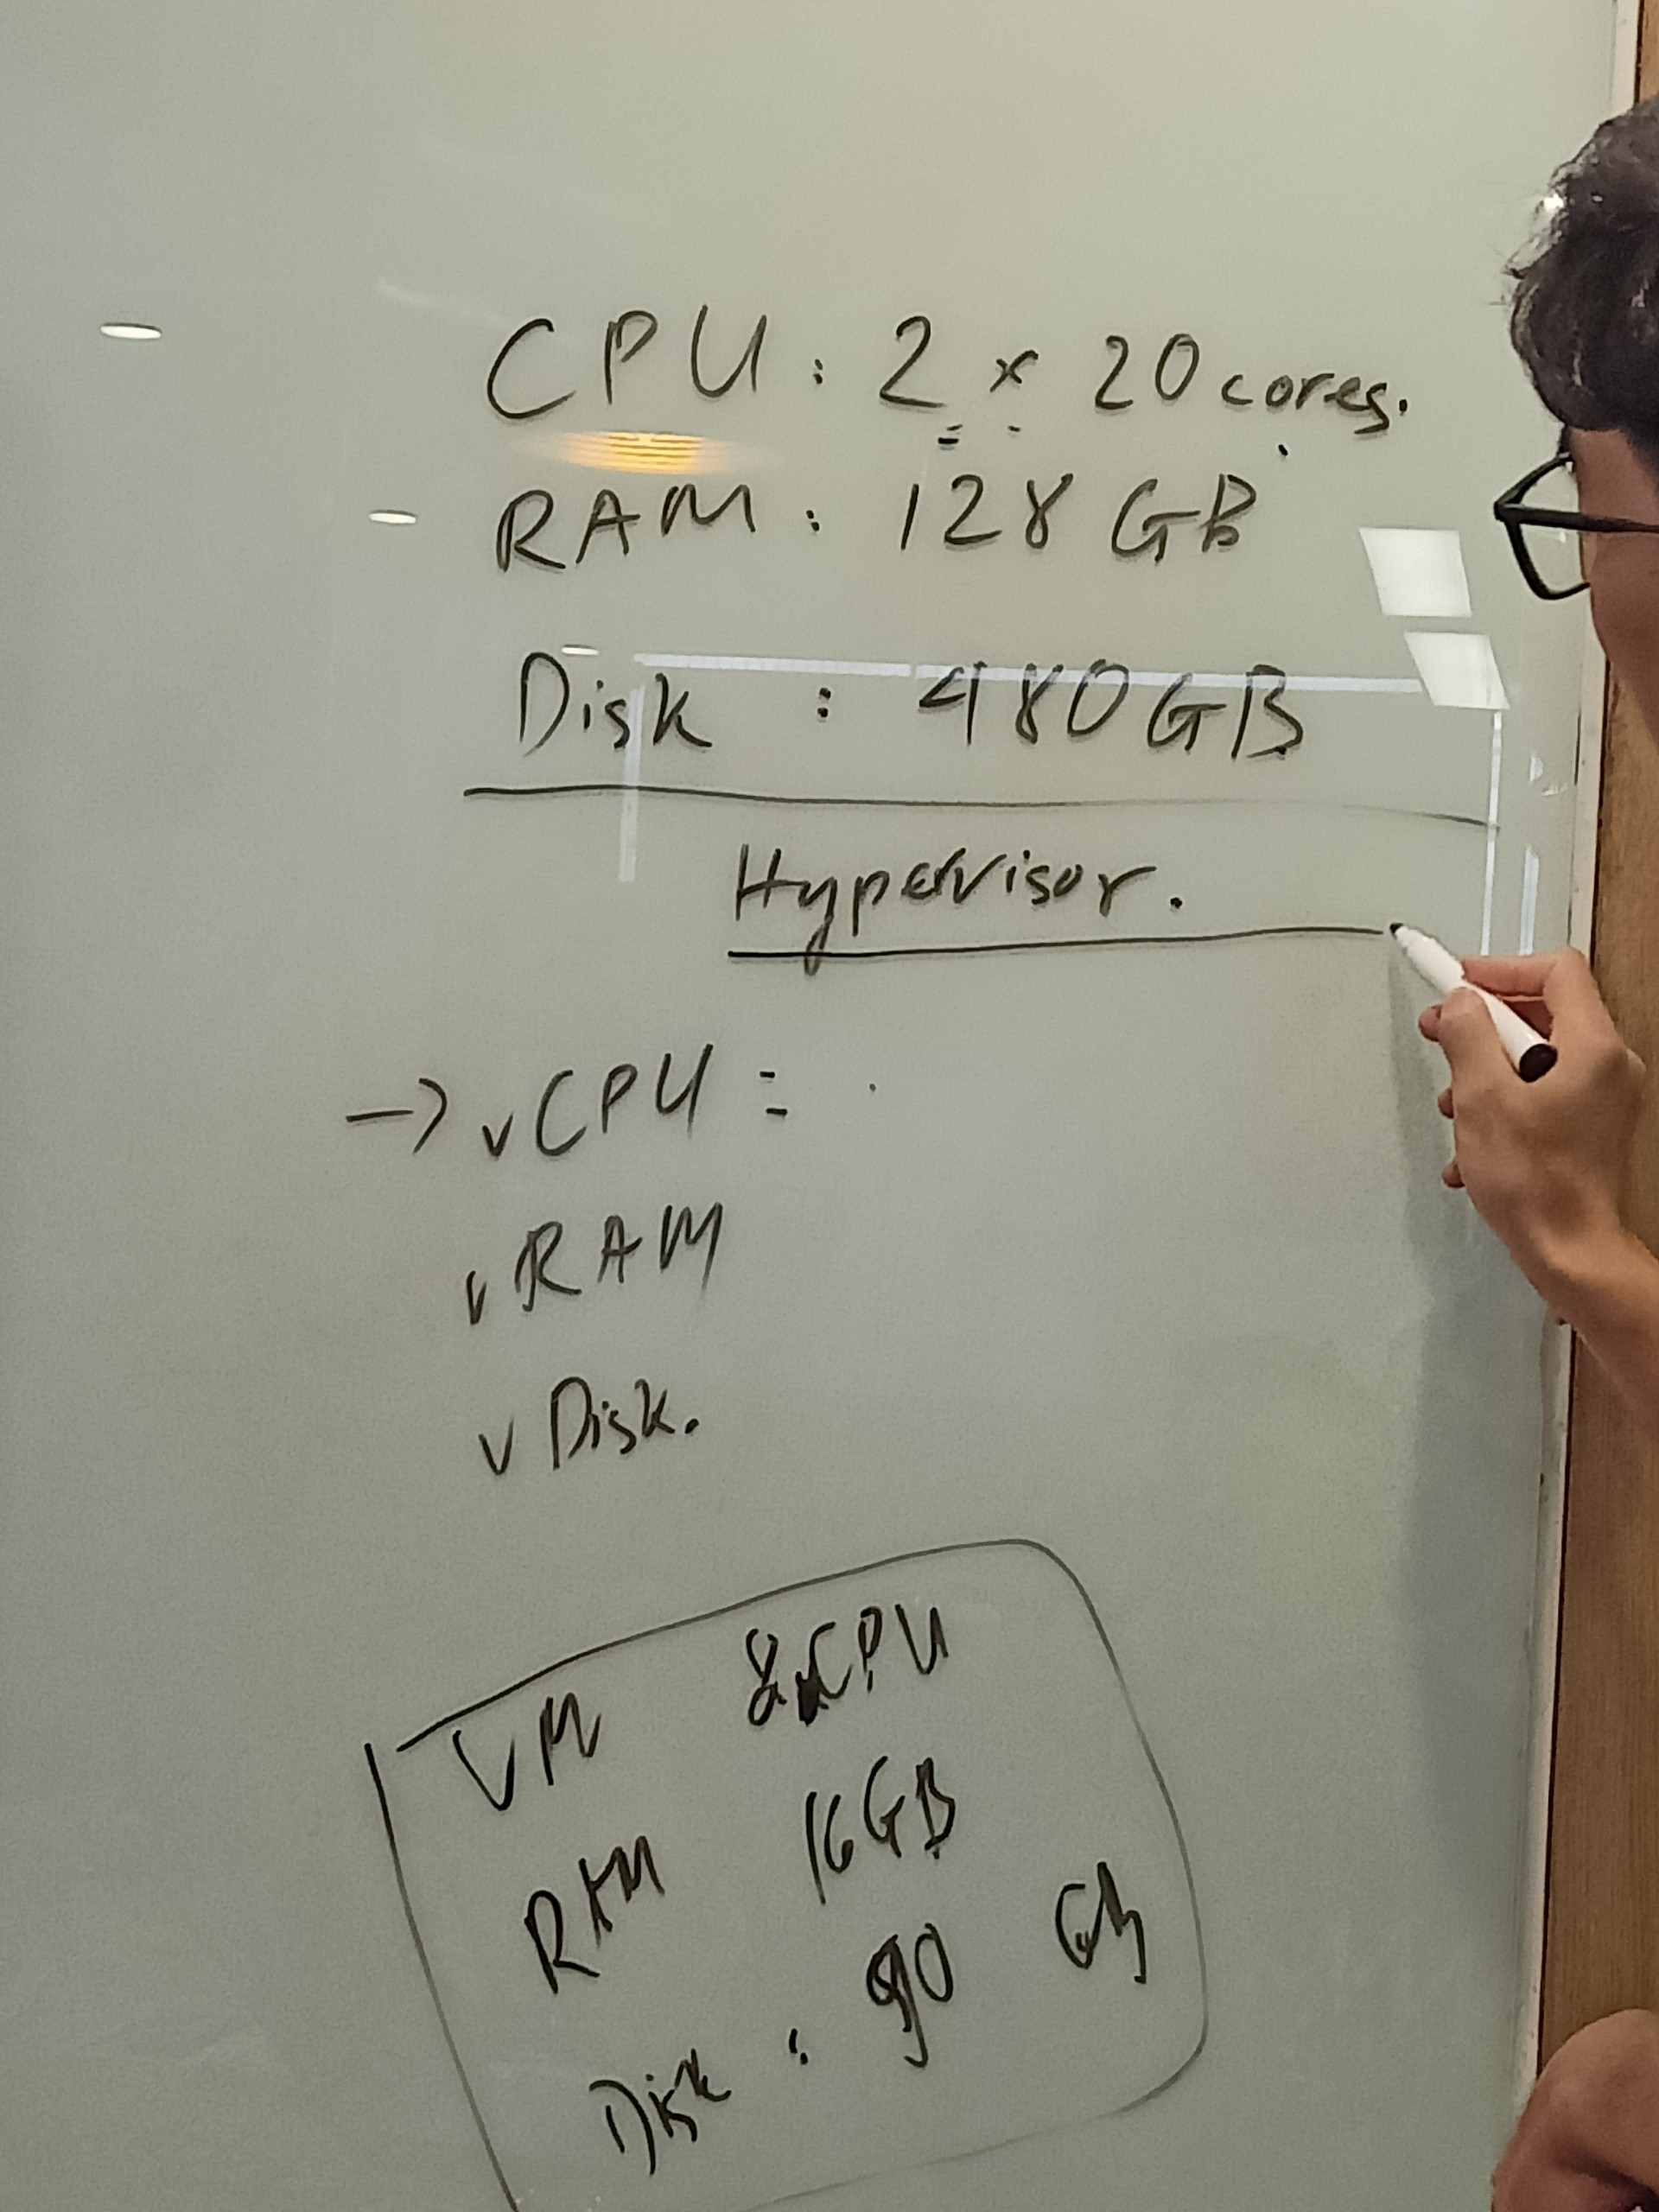 CPU : 2 x 20 cores.
RAM : 128 GB
Disk : 480 GB
Hypervisor.
→ vCPU =
vRAM
vDisk.
VM 8vCPU
RAM 16GB
Disk : 90 Gb